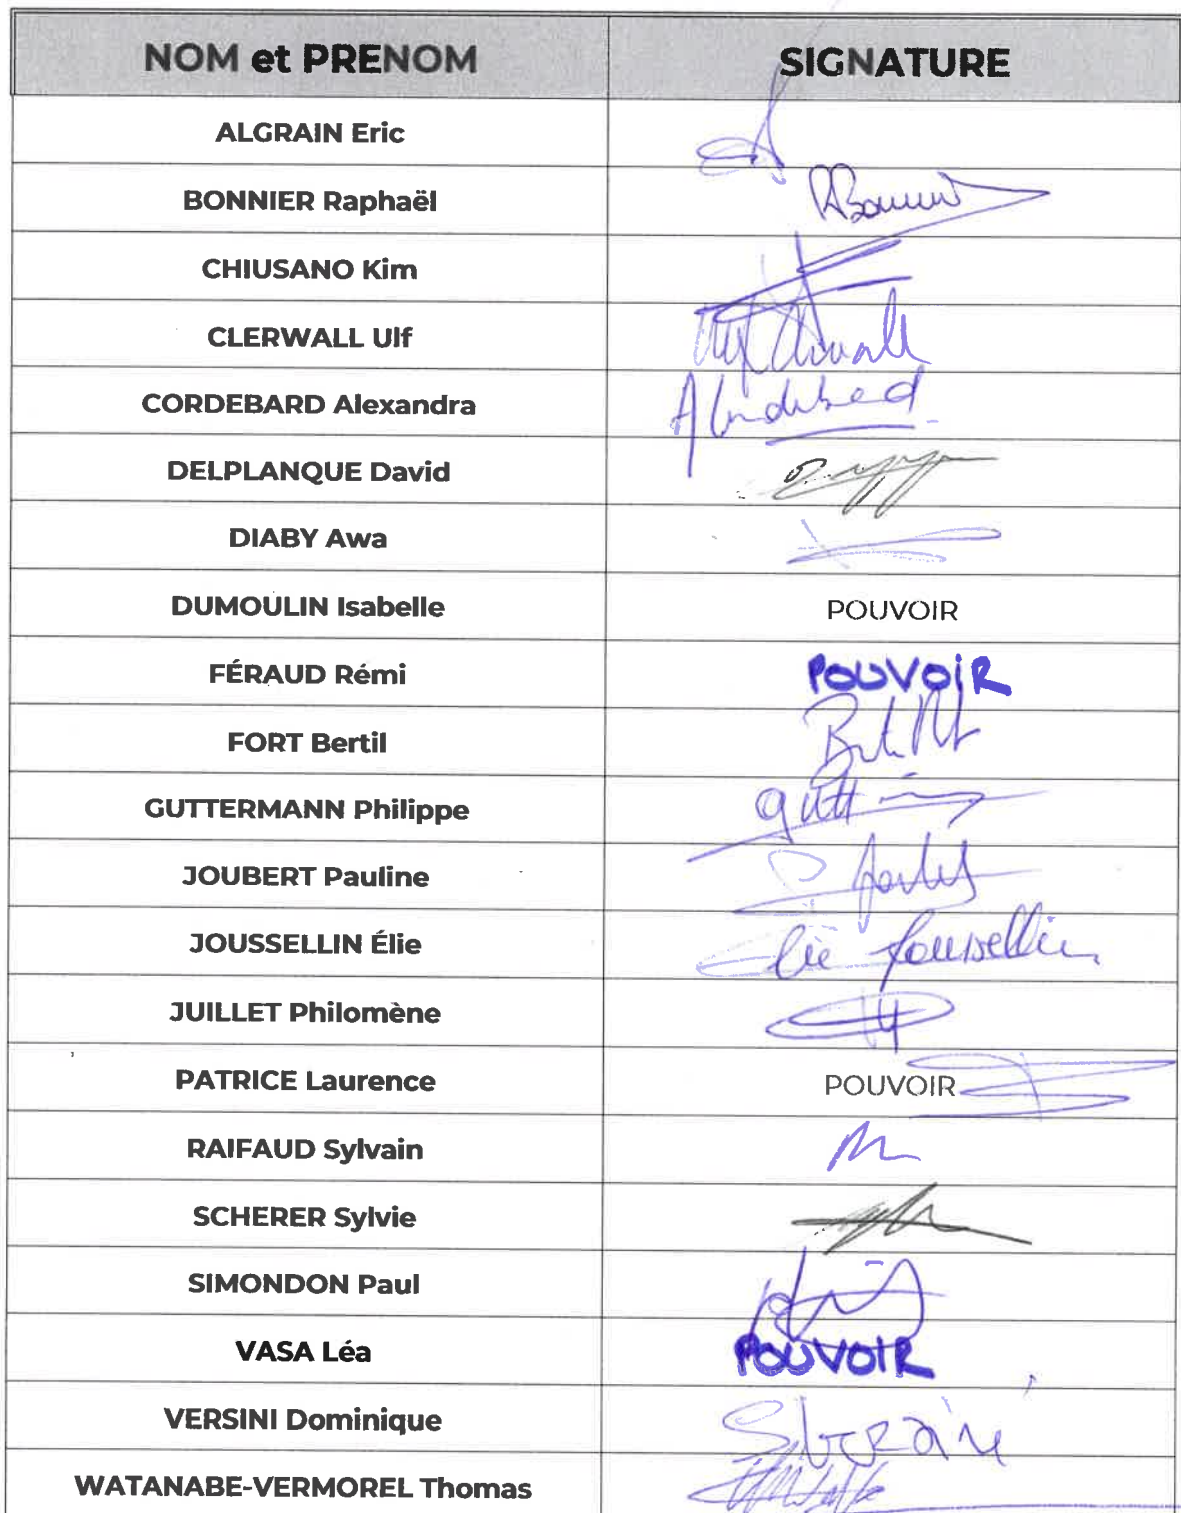 NOM et PRENOM SIGNATURE
ALGRAIN Eric
BONNIER Raphaël
CHIUSANO Kim
CLERWALL Ulf
CORDEBARD Alexandra
DELPLANQUE David
DIABY Awa
DUMOULIN Isabelle POUVOIR
FÉRAUD Rémi POUVOIR
FORT Bertil
GUTTERMANN Philippe
JOUBERT Pauline
JOUSSELLIN Élie
JUILLET Philomène
PATRICE Laurence POUVOIR
RAIFAUD Sylvain
SCHERER Sylvie
SIMONDON Paul
VASA Léa POUVOIR
VERSINI Dominique
WATANABE-VERMOREL Thomas